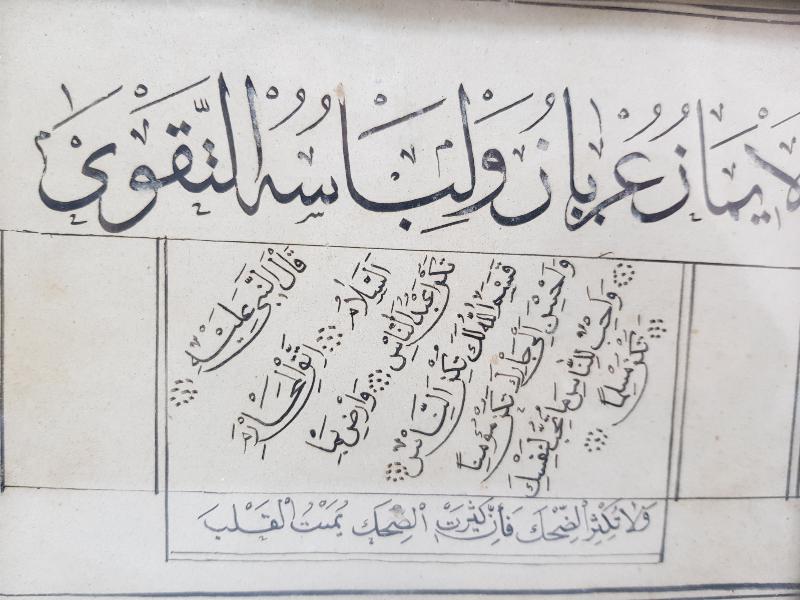 لايمان عُرْيان وَلِبَاسُه التَّقْوَى
قَالَ النَّبِيُّ عَلَيْهِ
السَّلَامُ اِتَّقِ الْمَحَارِمَ
تَكُنْ اَعْبَدَ النَّاسِ وَارْضَ بِمَا
قَسَمَ اللّٰهُ لَكَ تَكُنْ النَّاسِ
وَاَحْسِنْ اِلَى جَارِكَ تَكُنْ مُؤْمِنًا
وَاَحِبَّ لِلنَّاسِ مَا تُحِبُّ لِنَفْسِكَ
تَكُنْ مُسْلِمًا
وَلَا تُكْثِرِ الضِّحْكَ فَاِنَّ كَثْرَتَ الضِّحْكَ يُمِيتُ الْقَلْبَ